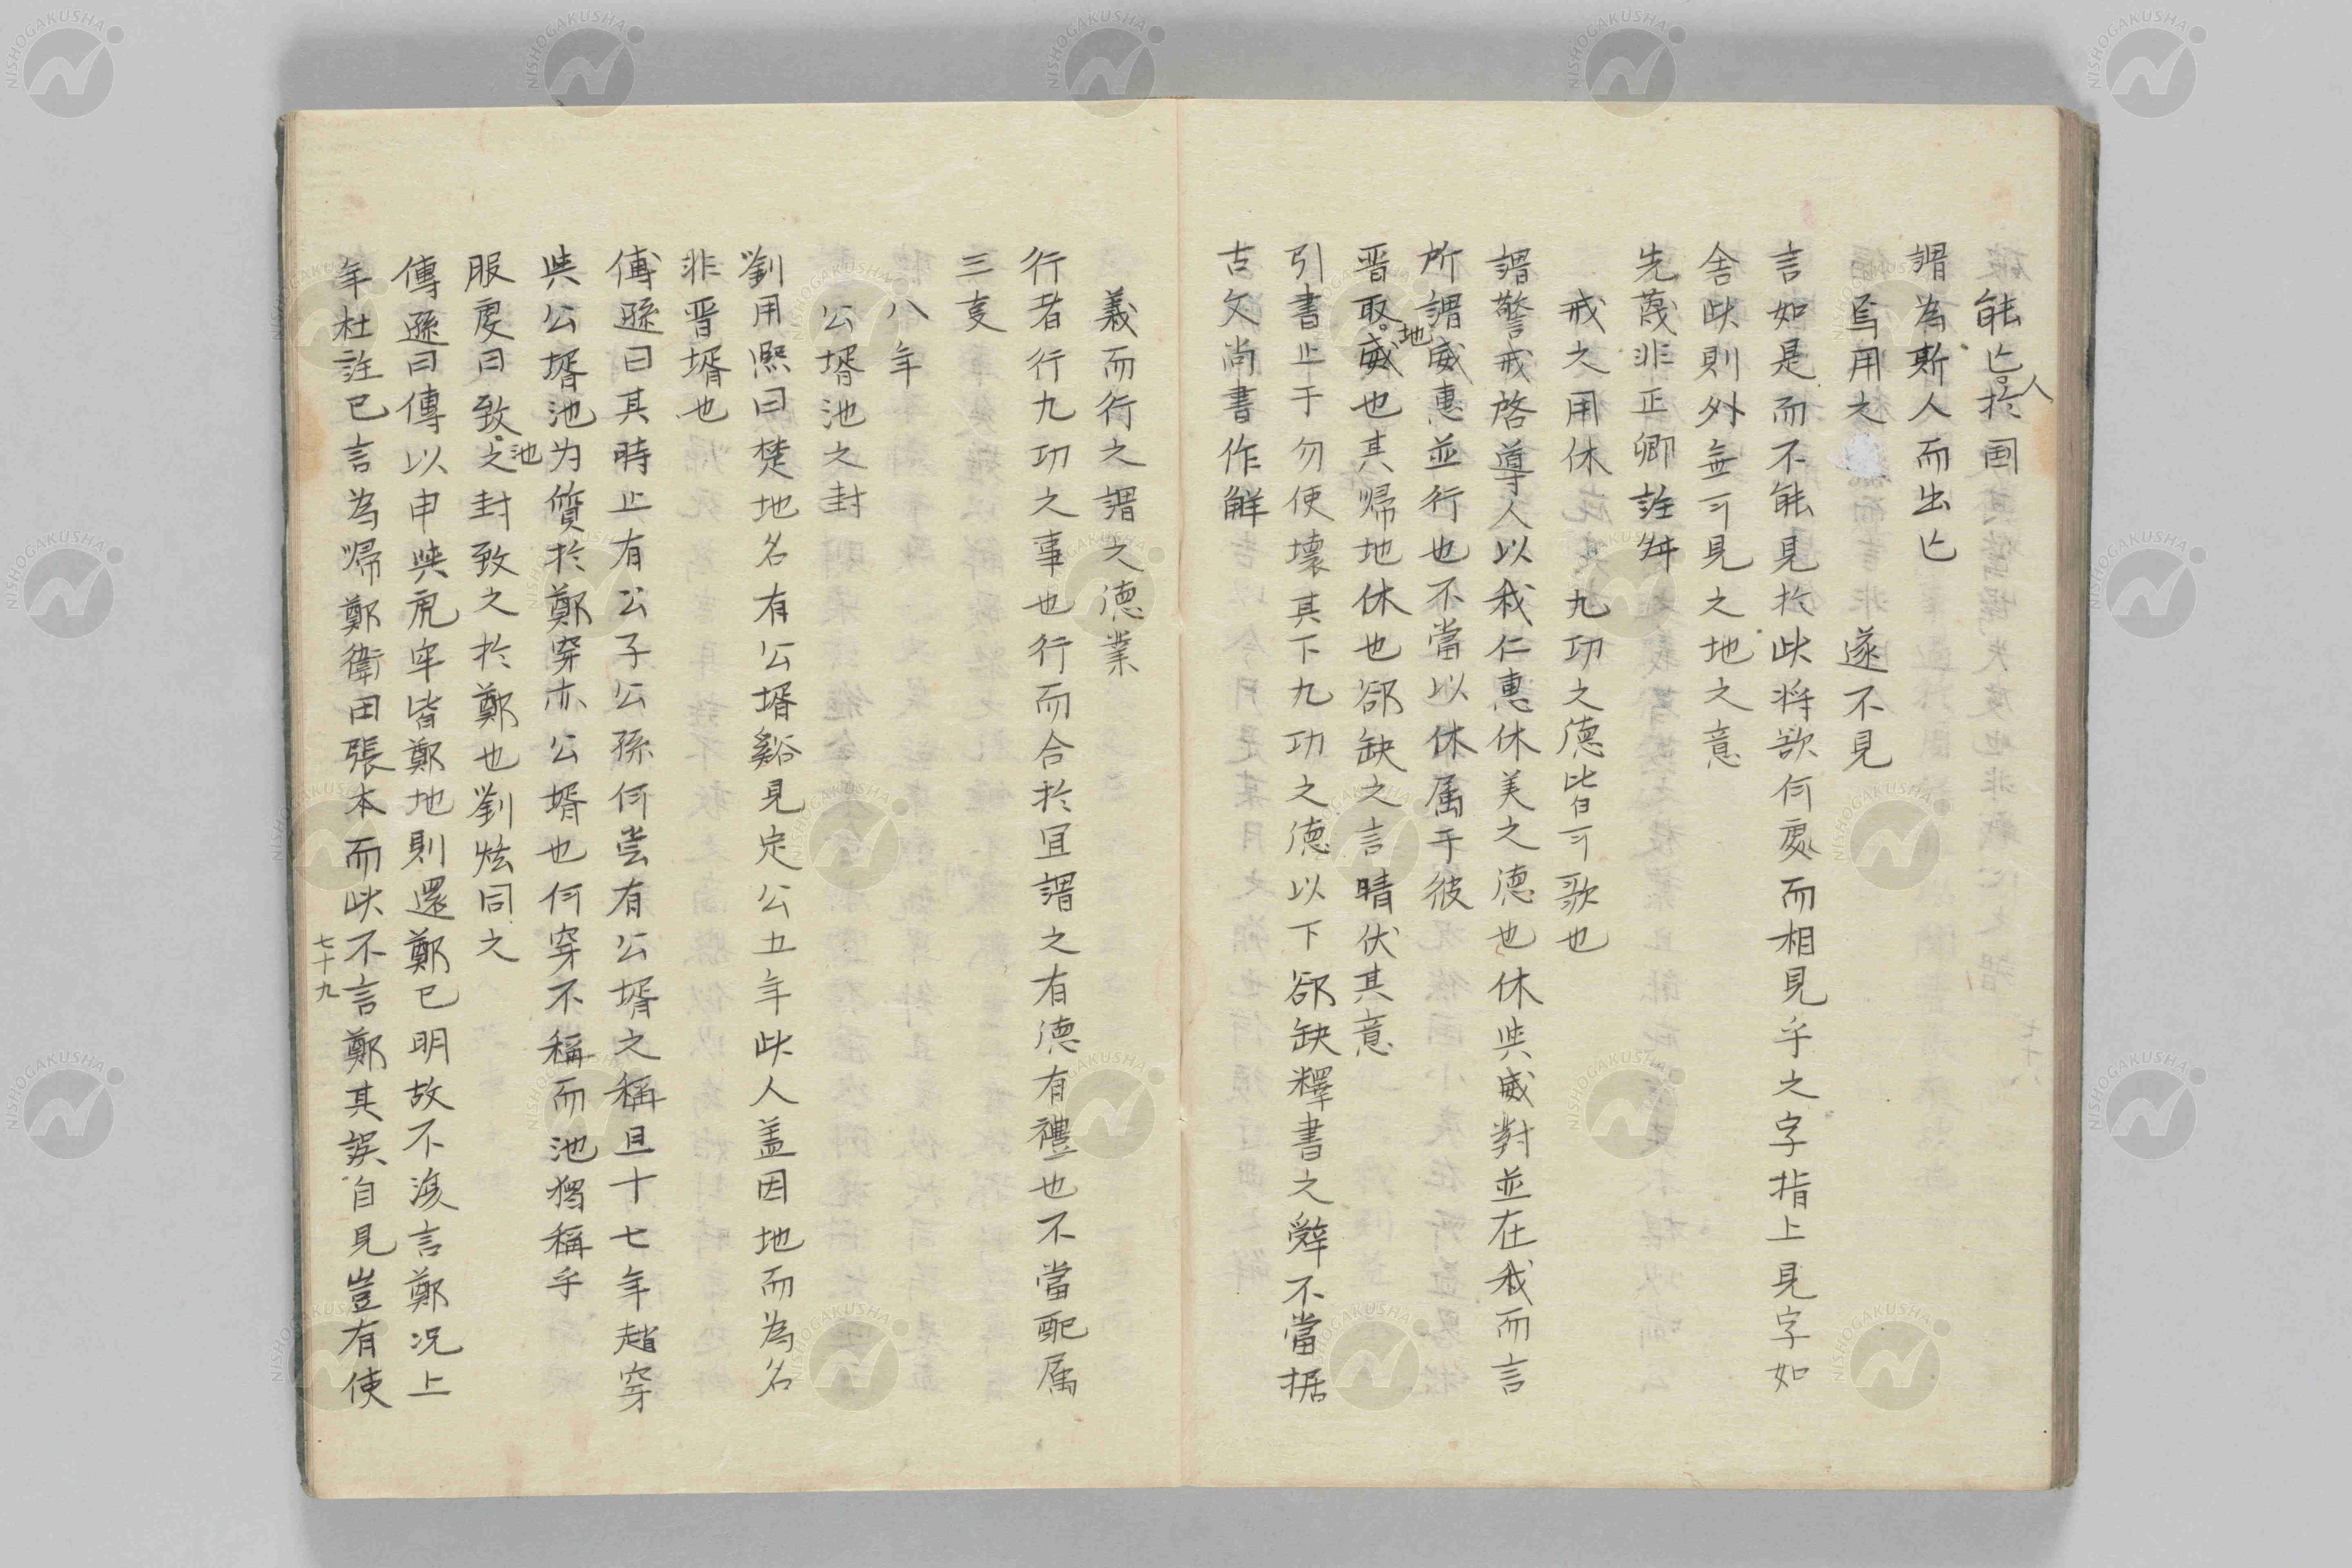 能亡人於国
謂為斯人而出亡
焉用之　遂不見
言如是而不能見於此将欲何處而相見乎之字指上見字如
舎此則外無可見之地之意
先蔑非正卿註舛
戒之用休　九功之德皆可歌也
謂警戒啓導人以我仁惠休美之德也休與威對並在我而言
所謂威惠並行也不當以休属于彼
晋取地威也其帰地休也郤缺之言晴伏其意
引書止于勿使壊其下九功之德以下郤缺釋書之辭不當据
古文尚書作解
義而行之謂之德業
行者行九功之事也行而合於宜謂之有德有禮也不當配属
三支
八年
公壻池之封
劉用熙曰楚地名有公壻谿見定公五年此人盖因地而為名
非晋壻也
傅遜曰其時止有公子公孫何嘗有公壻之稱且十七年趙穿
與公壻池为質於鄭穿亦公壻也何穿不稱而池獨稱乎
服虔曰致池之封致之於鄭也劉炫同之
傅遜曰傳以申與虎牢皆鄭地則還鄭已明故不復言鄭况上
年杜註已言為帰鄭衛田張本而此不言鄭其誤自見豈有使
七十九
NISHOGAKUSHA